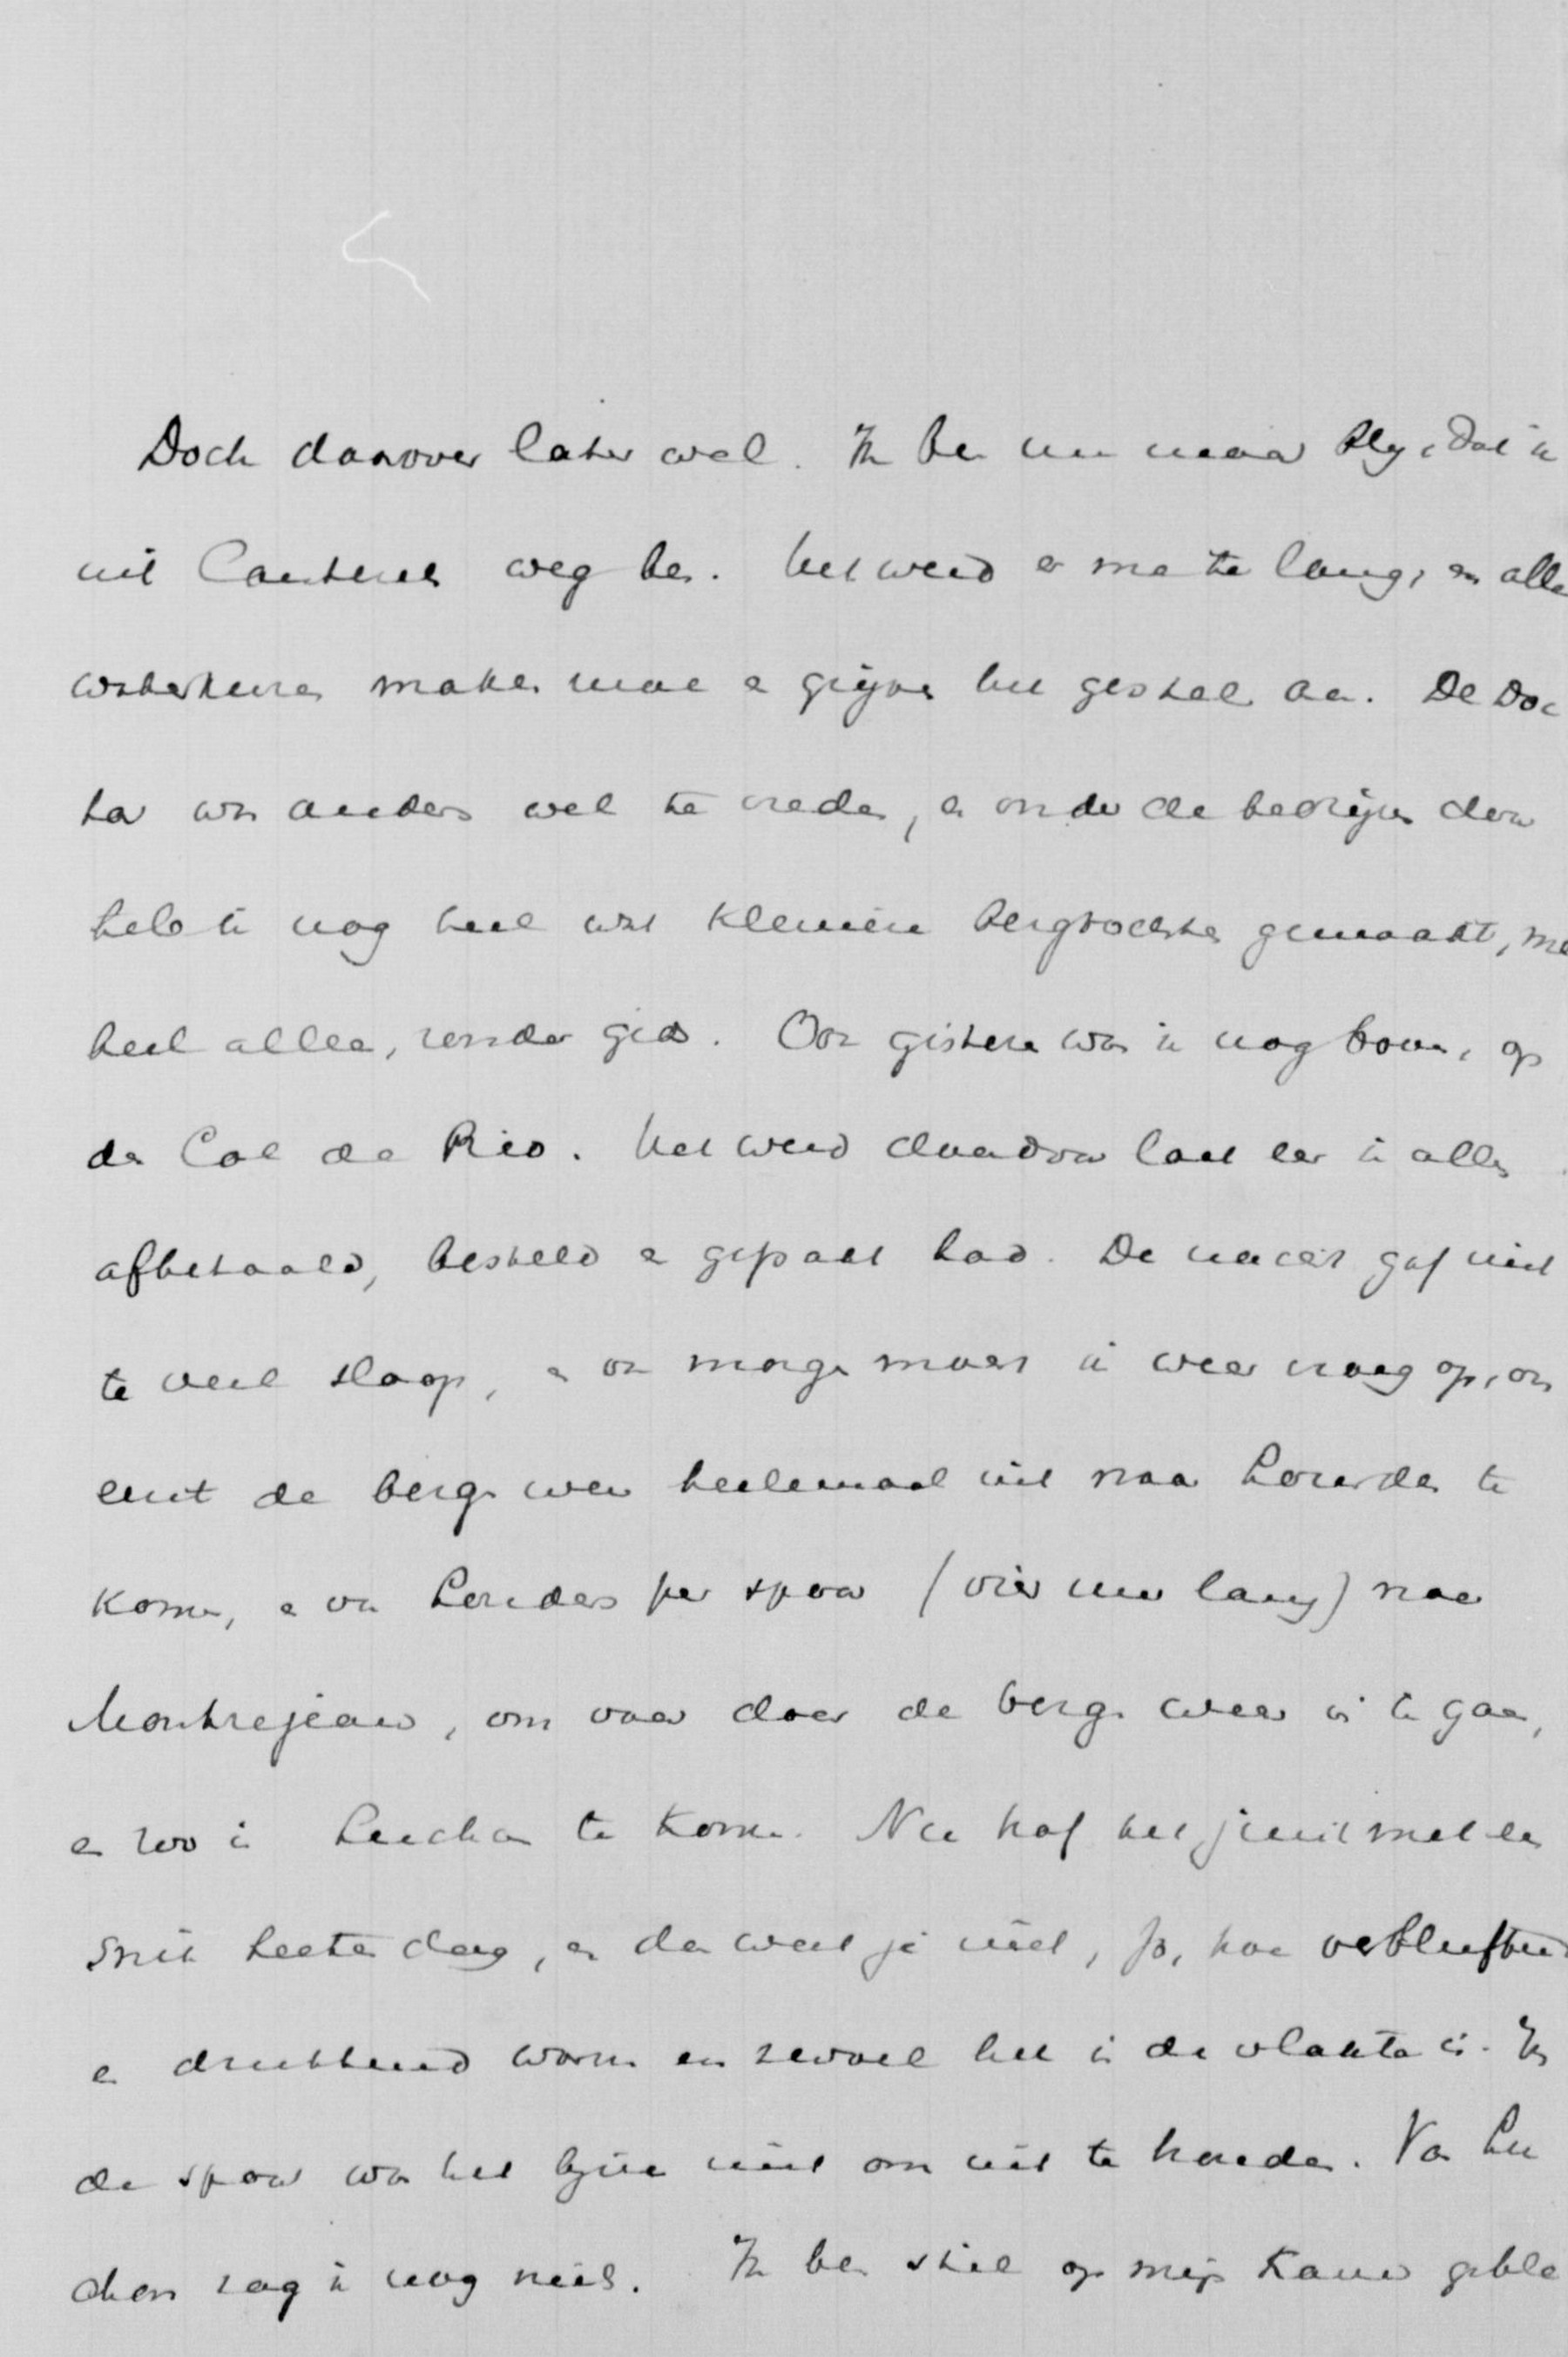 Doch daarover later wel. Ik ben nu maar bly, dat ik
uit Cauterets weg ben. Het werd er me te lang, en alle
waterkuren maken moe en grijpen het gestel aan. De Doc
tor was anders wel te vreden, en onder de bedrijven door
heb ik nog heel wat kleinere bergtochten gemaakt, me
heel alleen, zonder gids. Ook gisteren was ik nog boven, op
de Col de Riou. Het werd daardoor laat eer ik alles
afbetaald, besteld en gepakt had. De nacht gaf niet
te veel slaap, en van morgen moest ik weer vroeg op, om
eerst de bergen weer heelemaal uit naar Lourdes te
komen, en van Lourdes per spoor (vier uur lang) naar
Montrejeau, om van daar de bergen weer in te gaan,
en zoo in Luchon te komen. Nu trof het juist met een
snik heeten dag, en dan weet je niet, Jo, hoe verbluffend
en drukkend warm en zwoel het in de vlakte is. In
de spoor was het bijna niet om uit te houden. Van Lu
chon zag ik nog niets. Ik ben stil op mijn kamer geble